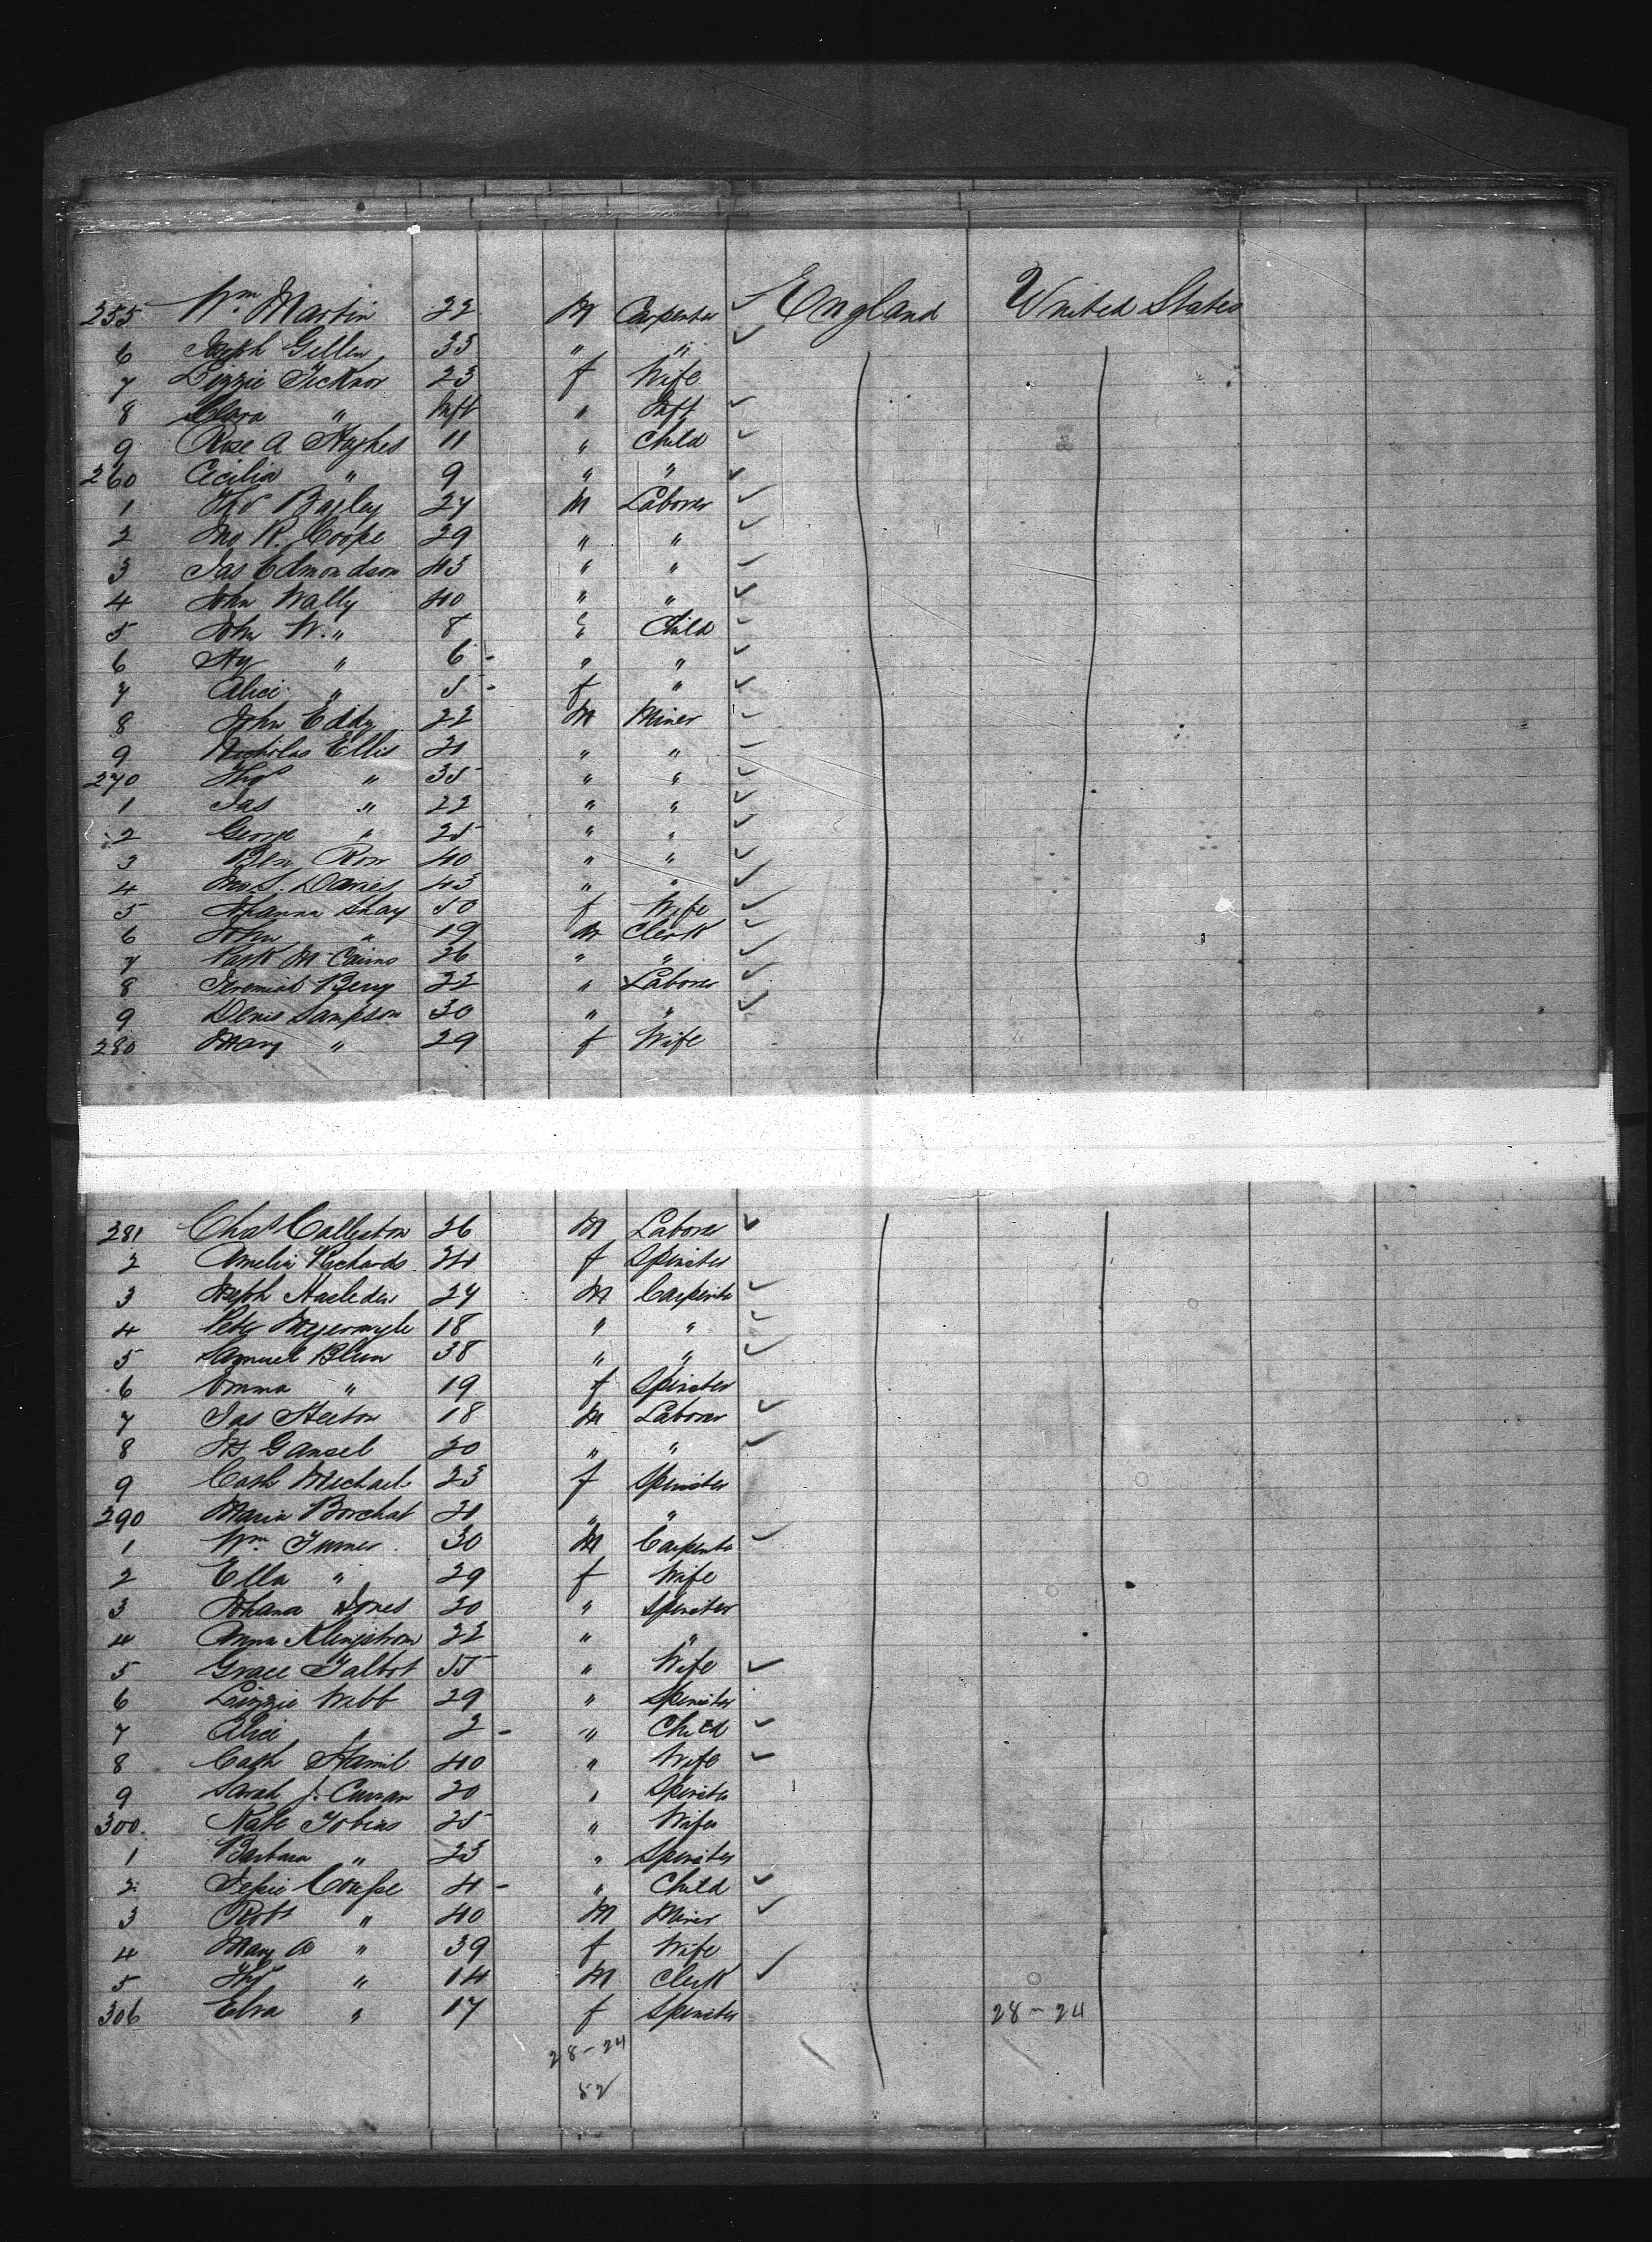 255 Wm Martin 22 M Carpenter ✓ England United States
6 Joseph Gillen 33 " " ✓
7 Lizzie Ticknor 23 f Wife
8 Clara " Inft " Inft ✓
9 Rose A Hughes 11 " Child ✓
260 Cecilia " 9 " " ✓
1 Thos Bagley 27 M Laborer ✓
2 Jno R. Coope 29 " " ✓
3 Jas Edmondson 43 " " ✓
4 John Wally 40 " " ✓
5 John W. " 8 " Child ✓
6 Hy " 6 - " " ✓
7 Alice " 5 - f " ✓
8 John Eddy 22 M Miner ✓
9 Nicholas Ellis 21 " " ✓
270 Thos " 35 " " ✓
1 Jas " 22 " " ✓
2 George " 25 " " ✓
3 Ben Row 40 " " ✓
4 Jno S. Davies 43 " " ✓
5 Johanna Shay 50 f Wife ✓
6 John " 19 M Clerk ✓
7 Patk McCairns 26 " " ✓
8 Jeremiah Berry 22 " Laborer ✓
9 Denis Sampson 30 " " ✓
280 Mary " 29 f Wife
281 Chas Colleston 26 M Laborer ✓
2 Amelia Richards 24 f Spinster
3 Joseph 27 M Carpenter ✓
4 Peter 18 " " ✓
5 Samuel Blum 38 " " ✓
6 Emma " 19 f Spinster
7 Jas Heeton 18 M Laborer ✓
8 Gansel 20 " " ✓
9 Cath Michael 23 f Spinster
290 Maria Borchat 21 " "
1 Wm Turner 30 M Carpenter ✓
2 Ella " 29 f Wife
3 Johana Jones 20 " Spinster
4 Anna Klingstrom 22 " "
5 Grace Talbot 55 " Wife ✓
6 Lizzie Webb 29 " Spinster
7 Alice " 2 - " Child ✓
8 Cath Hamil 40 " Wife ✓
9 Sarah J. Curran 20 " Spinster
300 Kate Tobias 25 " Wife
1 Barbara " 23 " Spinster
2 Jessie 4 - " Child ✓
3 Robt " 40 M Miner ✓
4 Mary A " 39 f Wife
5 Thos " 14 M Clerk ✓
306 Elva " 17 f Spinster 28-24
28-24
52